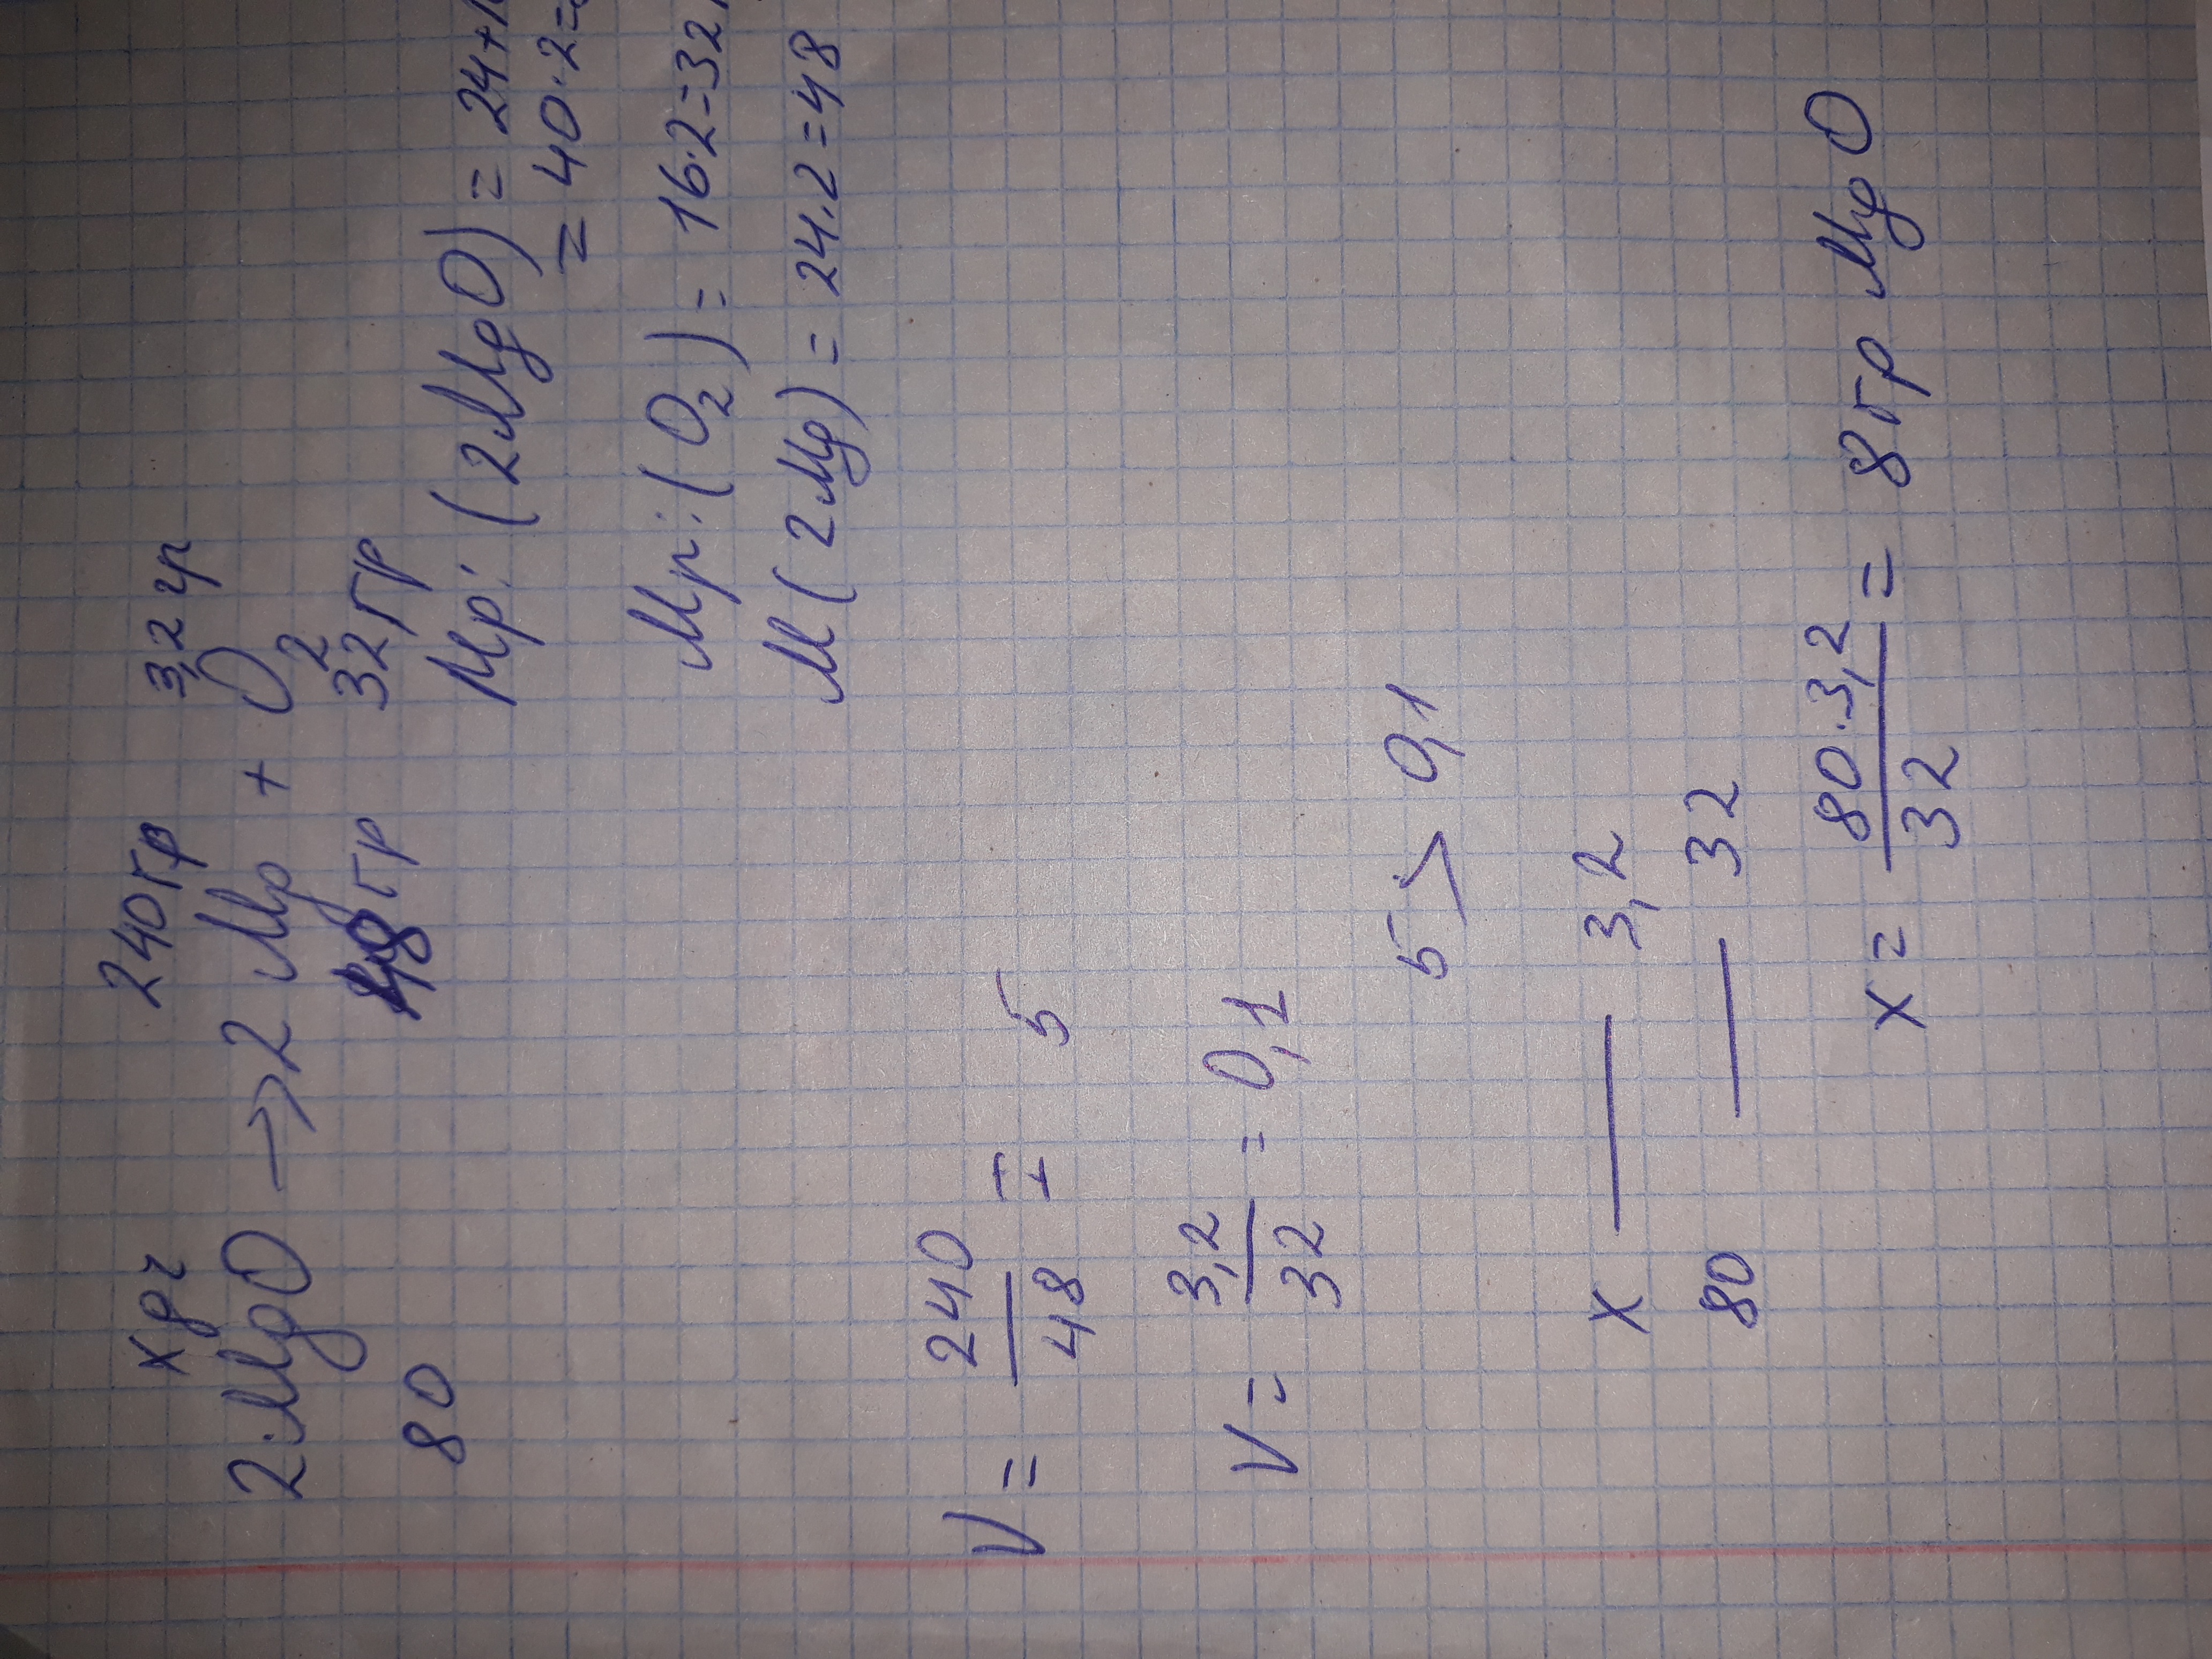 x гр 240 гр 3,2 гр
2 MgO → 2 Mg + O2
80 48 гр 32 гр
Mр: (2MgO) = 24+1
= 40·2=
Mр: (O2) = 16·2=32
M (2Mg) = 24·2=48
V = 240/48 = 5
V = 3,2/32 = 0,1
5 > 0,1
x — 3,2
80 — 32
x = 80·3,2/32 = 8 гр MgO